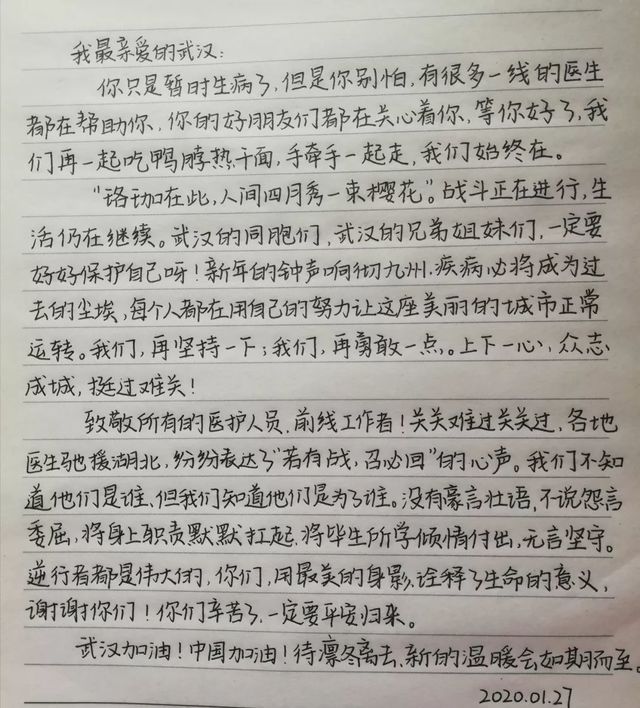 我最亲爱的武汉:
你只是暂时生病了,但是你别怕,有很多一线的医生
都在帮助你,你的好朋友们都在关心着你,等你好了,我
们再一起吃鸭脖热干面,手牵手一起走,我们始终在。
“珞珈在此,人间四月秀一束樱花”。战斗正在进行,生
活仍在继续。武汉的同胞们,武汉的兄弟姐妹们,一定要
好好保护自己呀!新年的钟声响彻九州,疾病必将成为过
去的尘埃,每个人都在用自己的努力让这座美丽的城市正常
运转。我们,再坚持一下;我们,再勇敢一点。上下一心,众志
成城,挺过难关!
致敬所有的医护人员、前线工作者!关关难过关关过,各地
医生驰援湖北,纷纷表达了“若有战,召必回”的心声。我们不知
道他们是谁、但我们知道他们是为了谁。没有豪言壮语,不说怨言
委屈,将身上职责默默扛起、将毕生所学倾情付出、无言坚守。
逆行者都是伟大的,你们,用最美的身影、诠释了生命的意义,
谢谢你们!你们辛苦了、一定要平安归来。
武汉加油!中国加油!待凛冬离去、新的温暖会如期而至。
2020.01.27